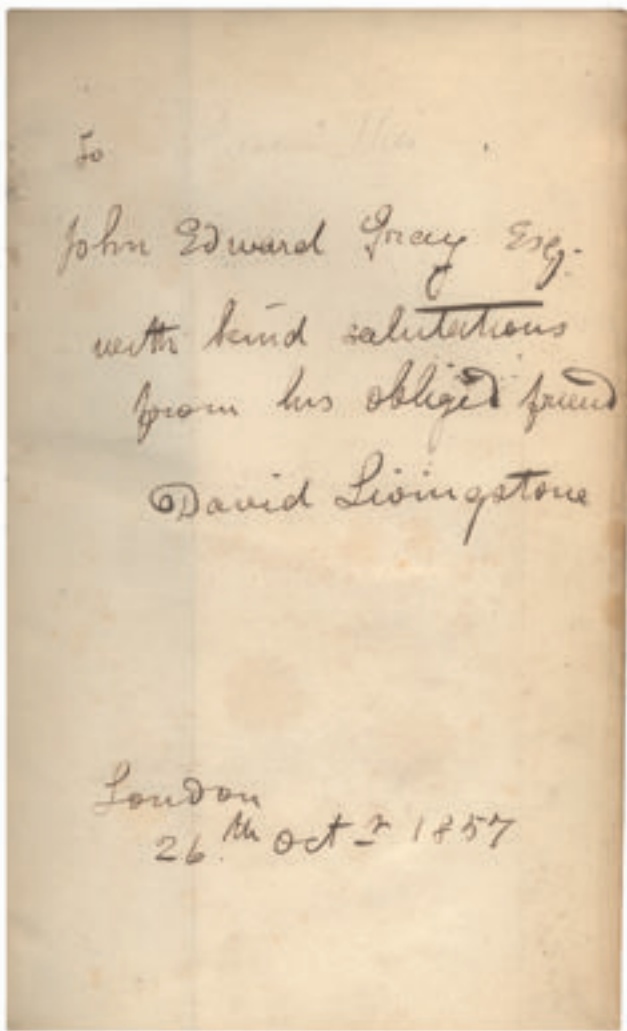 To
John Edward Gray Esq.
with kind salutations
from his obliged friend
David Livingstone
London
26th Octr 1857